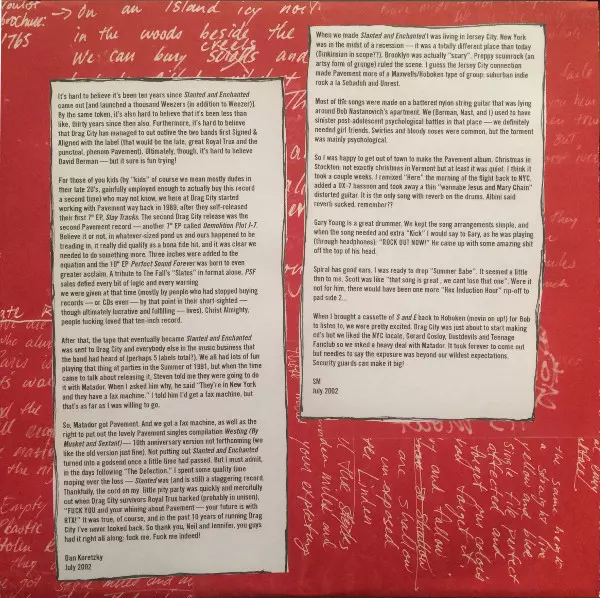 brochure:
1765
On an Island icy
in the woods beside the
creeks
We can buy scrolls and
It's hard to believe it's been ten years since Slanted and Enchanted
came out [and launched a thousand Weezers (in addition to Weezer)].
By the same token, it's also hard to believe that it's been less than
like, thirty years since then also. Furthermore, it's hard to believe
that Drag City has managed to out outlive the two bands first Signed &
Aligned with the label (that would be the late, great Royal Trux and the
punctual, phenom Pavement). Ultimately, though, it's hard to believe
David Berman – but it sure is fun trying!
For those of you kids (by "kids" of course we mean mostly dudes in
their late 20's, gainfully employed enough to actually buy this record
a second time) who may not know, we here at Drag City started
working with Pavement way back in 1989, after they self-released
their first 7" EP, Slay Tracks. The second Drag City release was the
second Pavement record – another 7" EP called Demolition Plot J-7.
Believe it or not, in whatever-sized pond us and ours happened to be
treading in, it really did qualify as a bona fide hit, and it was clear we
needed to do something more. Three inches were added to the
equation and the 10" EP Perfect Sound Forever was born to even
greater acclaim. A tribute to The Fall's "Slates" in format alone, PSF
sales defied every bit of logic and every warning
we were given at that time (mostly by people who had stopped buying
records – or CDs even – by that point in their short-sighted –
though ultimately lucrative and fulfilling – lives). Christ Almighty,
people fucking loved that ten-inch record.
After that, the tape that eventually became Slanted and Enchanted
was sent to Drag City and everybody else in the music business that
the band had heard of (perhaps 5 labels total?). We all had lots of fun
playing that thing at parties in the Summer of 1991, but when the time
came to talk about releasing it, Steven told me they were going to do
it with Matador. When I asked him why, he said "They're in New York
and they have a fax machine." I told him I'd get a fax machine, but
that's as far as I was willing to go.
So, Matador got Pavement. And we got a fax machine, as well as the
right to put out the lovely Pavement singles compilation Westing (By
Musket and Sextant) – 10th anniversary version not forthcoming (we
like the old version just fine). Not putting out Slanted and Enchanted
turned into a godsend once a little time had passed. But I must admit,
in the days following "The Defection," I spent some quality time
moping over the loss – Slanted was (and is still) a staggering record.
Thankfully, the cord on my little pity party was quickly and mercifully
cut when Drag City survivors Royal Trux barked (probably in unison),
"FUCK YOU and your whining about Pavement – your future is with
RTX!" It was true, of course, and in the past 10 years of running Drag
City I've never looked back. So thank you, Neil and Jennifer, you guys
had it right all along: fuck me. Fuck me indeed!
Dan Koretzky
July 2002
When we made Slanted and Enchanted I was living in Jersey City. New York
was in the midst of a recession – it was a totally different place than today
(Dinkinsian in scope??). Brooklyn was actually "scary". Preppy scumrock (an
artsy form of grunge) ruled the scene. I guess the Jersey City connection
made Pavement more of a Maxwells/Hoboken type of group: suburban indie
rock a la Sebadoh and Unrest.
Most of the songs were made on a battered nylon string guitar that was lying
around Bob Nastanovich's apartment. We (Berman, Nast, and i) used to have
sinister post-adolescent psychological battles in that place – we definitely
needed girl friends. Swirlies and bloody noses were common, but the torment
was mainly psychological.
So I was happy to get out of town to make the Pavement album. Christmas in
Stockton: not exactly christmas in Vermont but at least it was quiet. I think it
took a couple weeks. I remixed "Here" the morning of the flight back to NYC,
added a DX-7 bassoon and took away a thin "wannabe Jesus and Mary Chain"
distorted guitar. It is the only song with reverb on the drums. Albini said
reverb sucked, remember??
Gary Young is a great drummer. We kept the song arrangements simple, and
when the song needed and extra "Kick" I would say to Gary, as he was playing
(through headphones): "ROCK OUT NOW!" He came up with some amazing shit
off the top of his head.
Spiral has good ears. I was ready to drop "Summer Babe". It seemed a little
thin to me. Scott was like "that song is great , we cant lose that one". Were it
not for him, there would have been one more "Hex Induction Hour" rip-off to
pad side 2...
When I brought a cassette of S and E back to Hoboken (movin on up!) for Bob
to listen to, we were pretty excited. Drag City was just about to start making
cd's but we liked the NYC locale, Gerard Cosloy, Dustdevils and Teenage
Fanclub so we inked a heavy deal with Matador. It took forever to come out
but needles to say the exposure was beyond our wildest expectations.
Security guards can make it big!
SM
July 2002